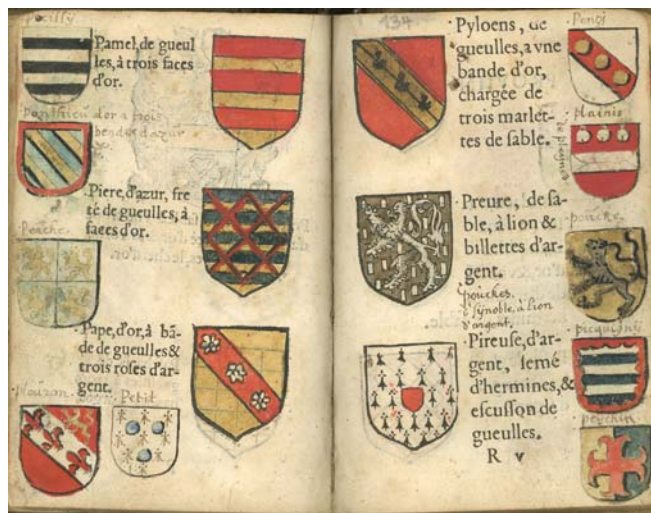 Pamel, de gueul
les, à trois faces
d'or.
Ponthieu d'or a trois
bendes d'azur
Piere, d'azur, fre
té de gueulles, à
faces d'or.
Pape, d'or, à bã-
de de gueulles &
trois roses d'ar-
gent.
Petit
134
Pyloens, de
gueulles, a vne
bande d'or,
chargée de
trois marlet-
tes de sable.
plainis
Preure, de sa-
ble, à lion &
billettes d'ar-
gent.
pouckes.
d'synoble, a lion
d'argent.
poucke.
Pireuse, d'ar-
gent, semé
d'hermines, &
escusson de
gueulles.
R v